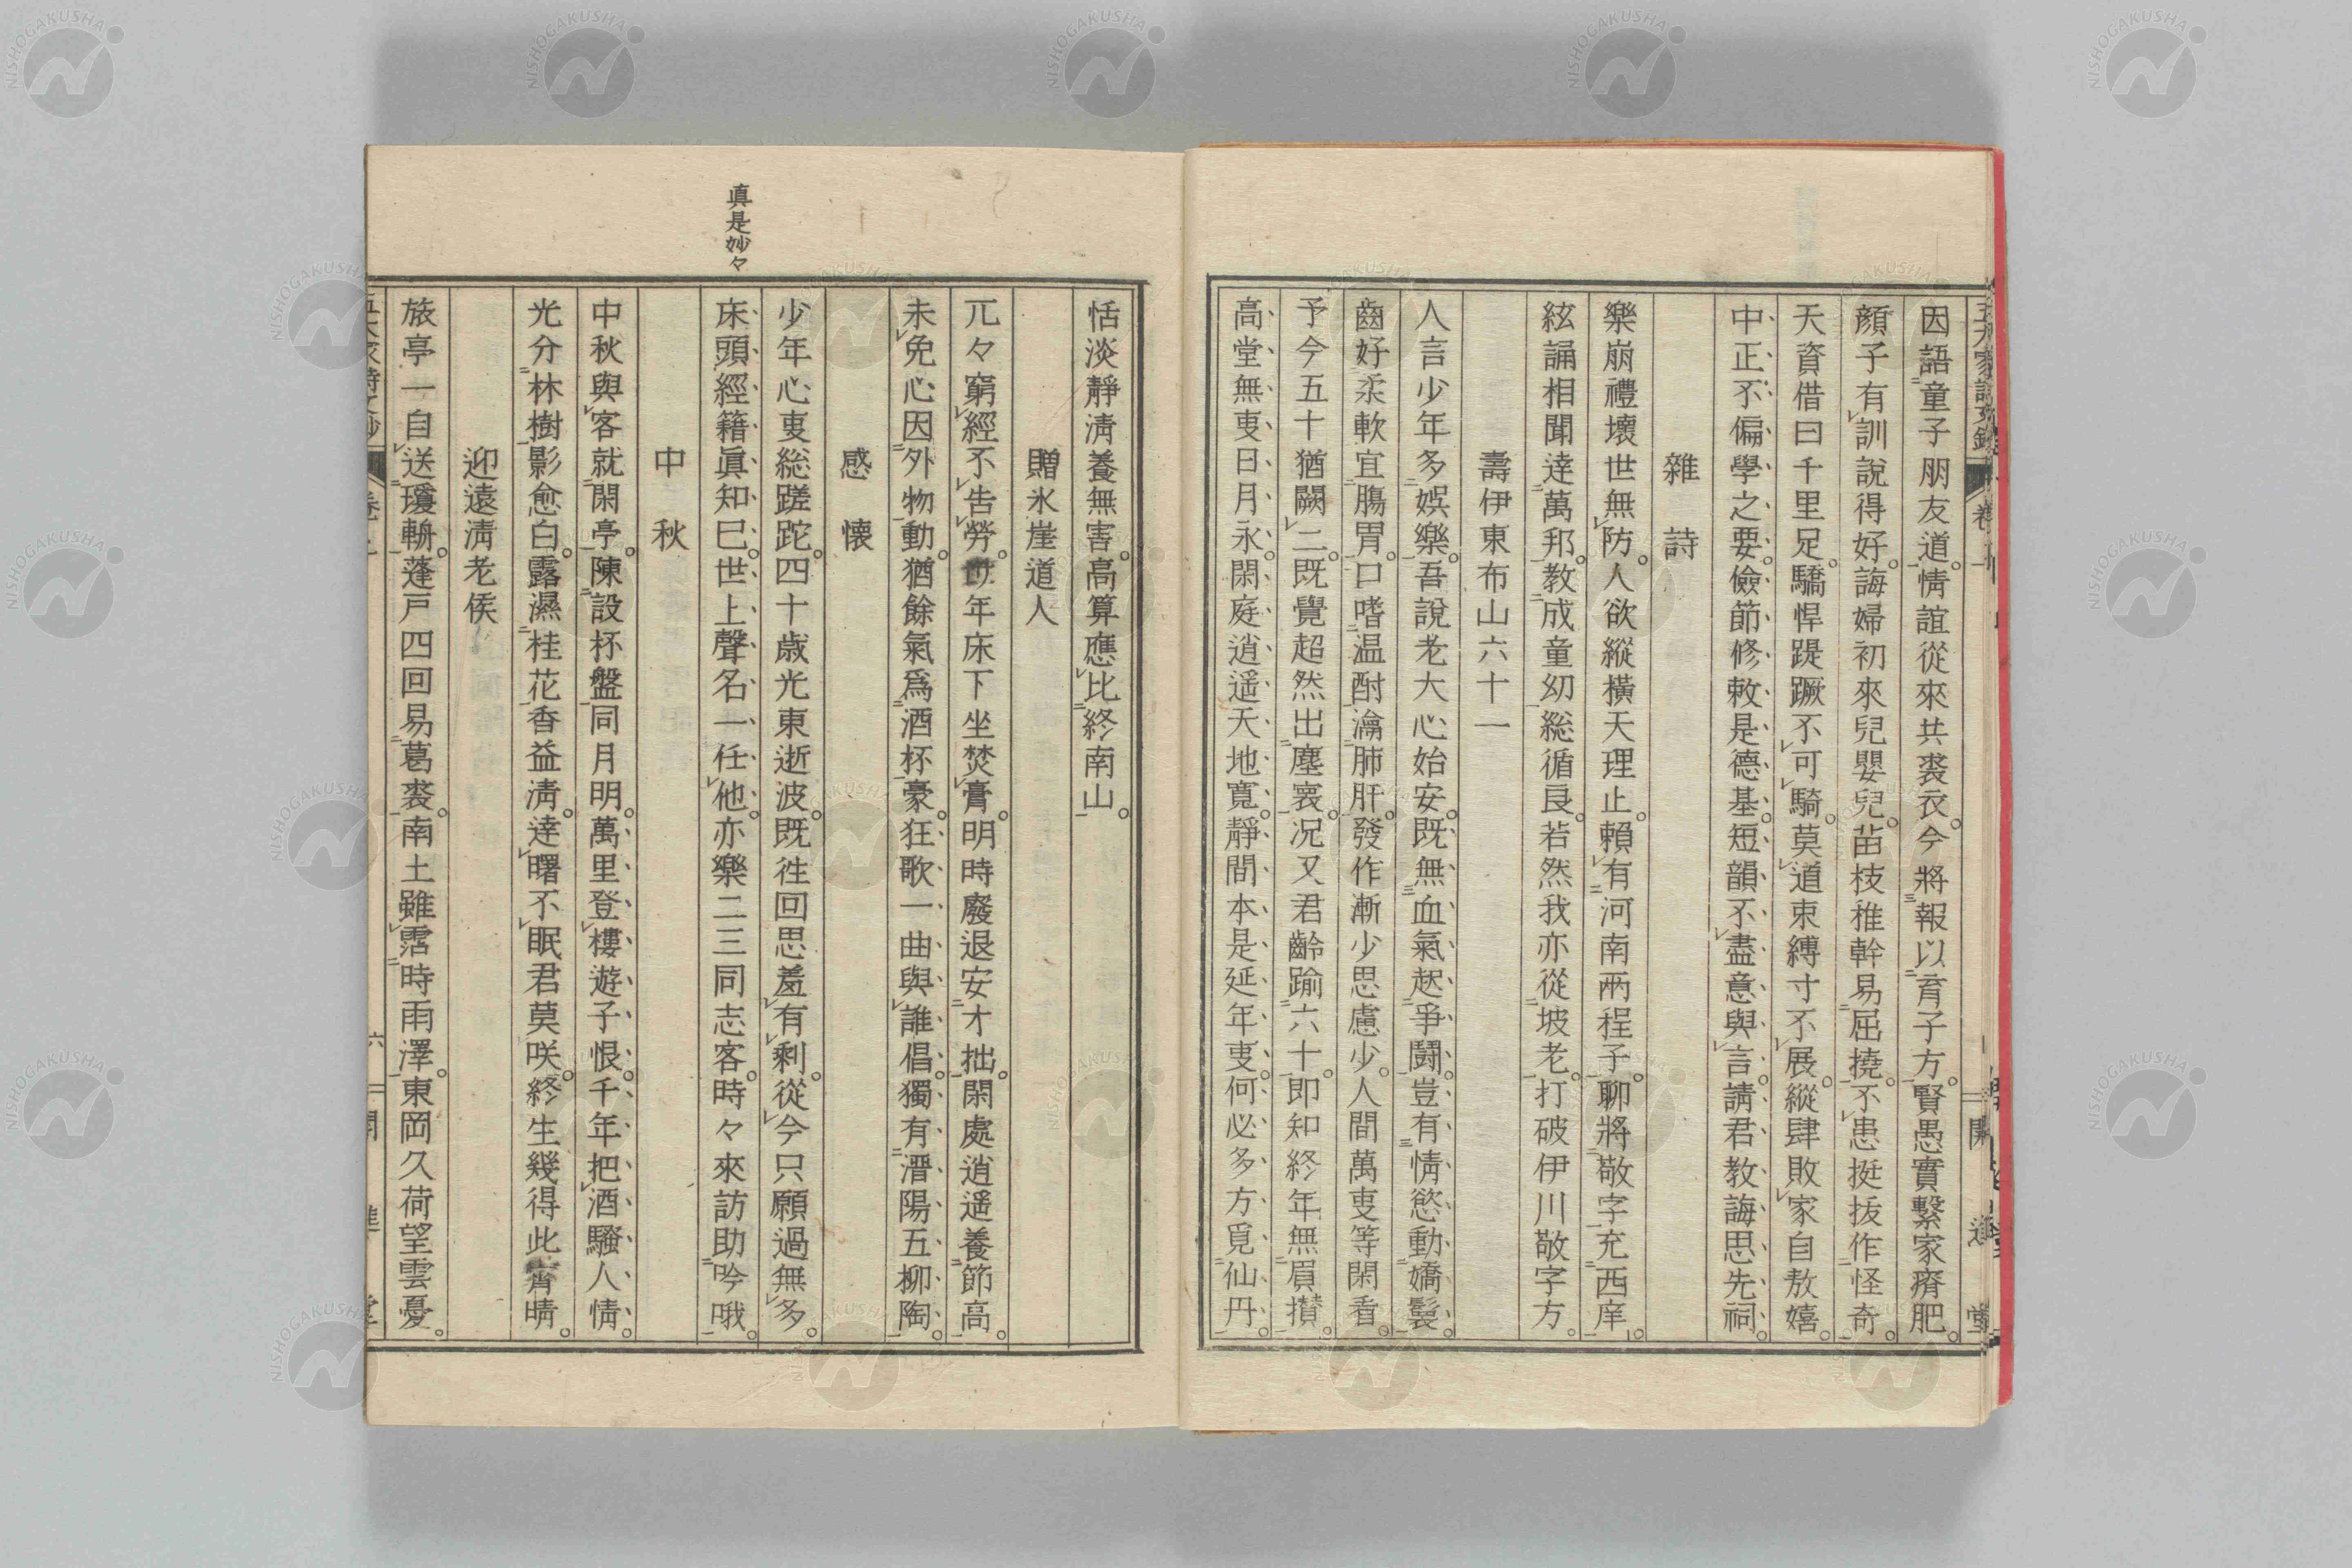 因語童子朋友道。情誼從來共裘衣。今將報以育子方。賢愚實繫家瘠肥。
顔子有訓說得好。誨婦初來兒嬰兒。苗枝稚幹易屈撓。不患挺拔作怪奇。
天資借曰千里足。驕悍踶蹶不可騎。莫道束縛寸不展。縱肆敗家自敖嬉。
中正不偏學之要。儉節修敕是德基。短韻不盡意與言。請君教誨思先祠。
雜詩
樂崩禮壞世無防。人欲縱橫天理止。賴有河南兩程子。聊將敬字充西庠。
絃誦相聞達萬邦。教成童幼總循良。若然我亦從坡老。打破伊川敬字方。
壽伊東布山六十一
人言少年多娯樂。吾說老大心始安。既無血氣起爭鬪。豈有情慾動嬌鬟。
齒好柔軟宜膓胃。口嗜温酎瀹肺肝。發作漸少思慮少。人間萬叓等閑看。
予今五十猶闕二。既覺超然出塵寰。况又君齡踰六十。即知終年無眉攢。
高堂無叓日月永。閑庭逍遥天地寬。靜間本是延年叓。何必多方覓仙丹。
恬淡靜淸養無害。高算應比終南山。
贈氷崖道人
兀々窮經不告勞。年床下坐焚膏。明時廢退安才拙。閑處逍遥養節高。
未免心因外物動。猶餘氣爲酒杯豪。狂歌一曲與誰倡。獨有潯陽五柳陶。
感懷
少年心叓総蹉跎。四十歳光東逝波。既徃回思羞有剩。從今只願過無多。
真是妙々
床頭經籍眞知已。世上聲名一任他。亦樂二三同志客。時々來訪助吟哦。
中秋
中秋與客就閑亭。陳設杯盤同月明。萬里登樓遊子恨。千年把酒騷人情。
光分林樹影愈白。露濕桂花香益淸。達曙不眠君莫咲。終生幾得此宵晴。
迎遠淸老侯
旅亭一自送瓊輧。蓬戸四回易葛裘。南土雖霑時雨澤。東岡久荷望雲憂。